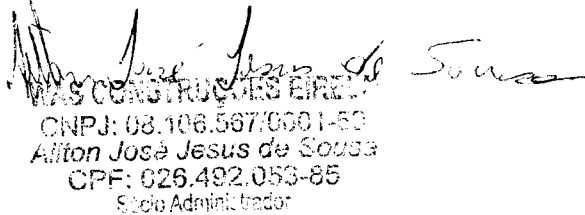 Ailton José Jesus de Sousa
WAS CONSTRUÇÕES EIRELI
CNPJ: 08.106.567/0001-50
Ailton José Jesus de Sousa
CPF: 026.492.053-85
Sócio Administrador